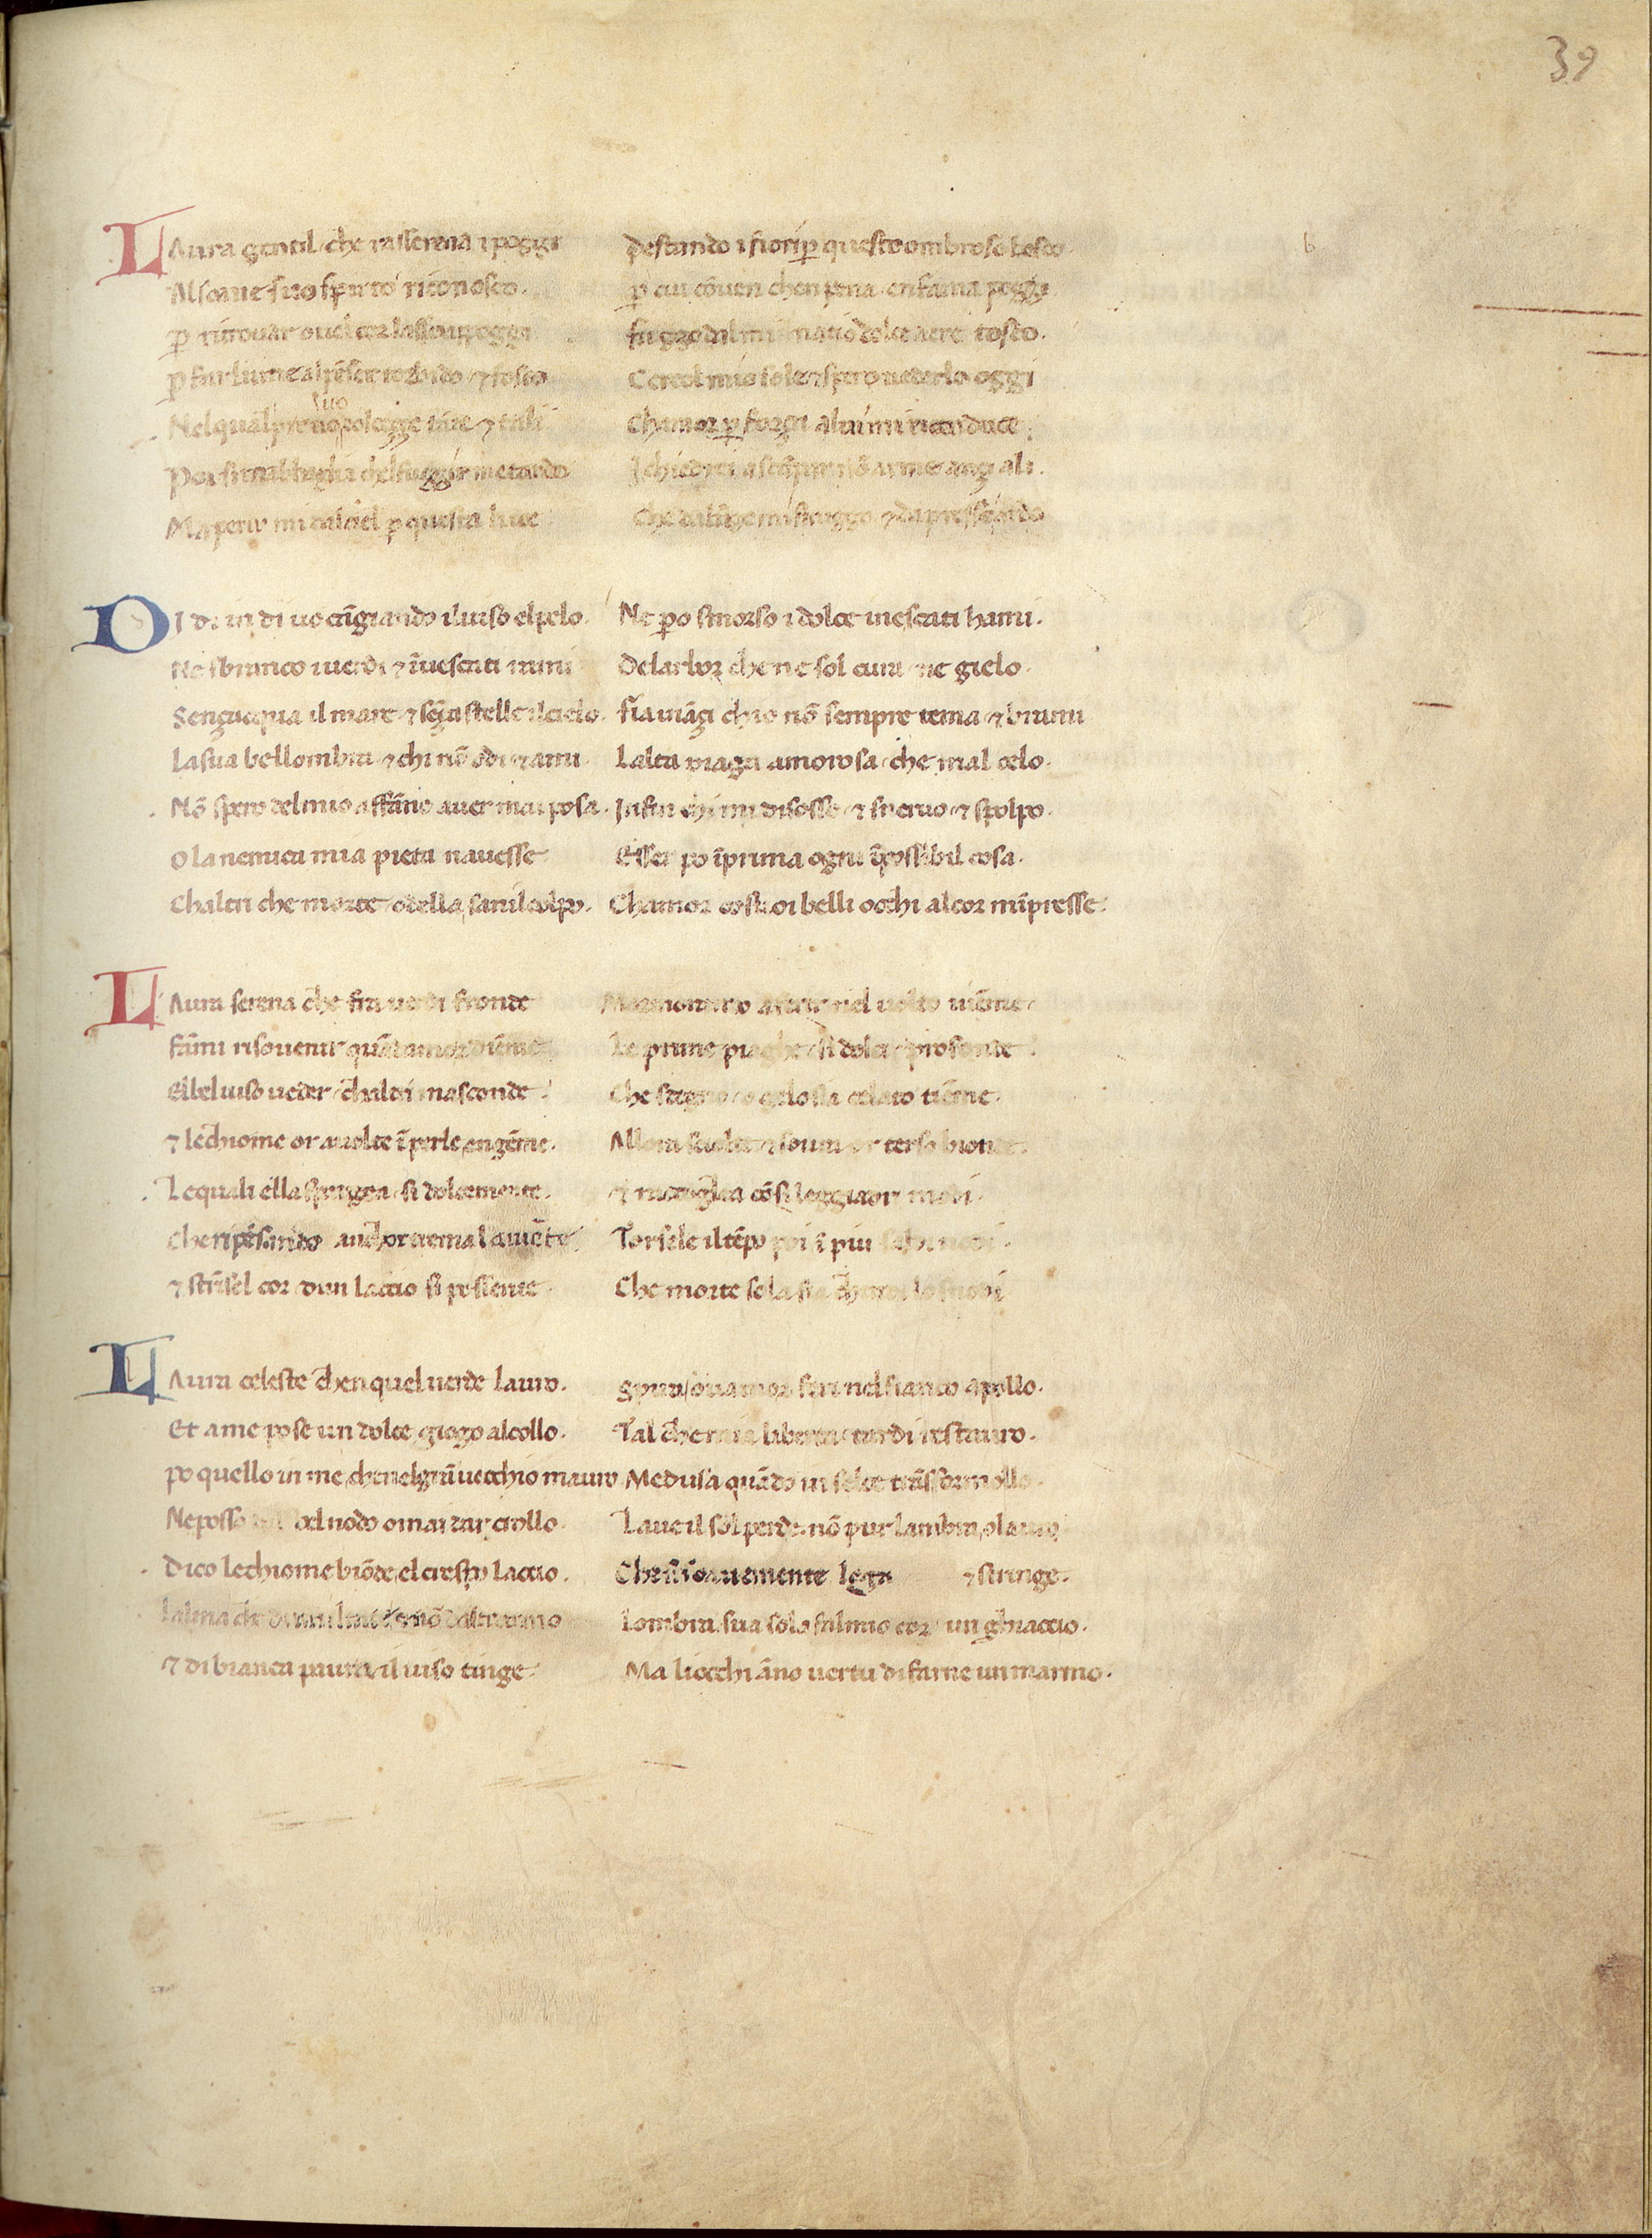 39
LAura gentil che rasserena i poggi destando i fiori ꝑ questo ombroso bosco.
Al soaue suo spirto riconosco. ꝑ cui cōuen chen pena enfama poggi
ꝑ ritrouar ouel cor lasso appoggi fuggo dal mi natio dolce aere tosco.
ꝑ far lume al pēser torbido ⁊ fosco Cercol mio sole ⁊ spero uederlo oggi
Nel qual prouo dolceççe tāte ⁊ tali Chamor ꝑ força a lui mi riconduce
suo
Poi si mabbaglia chel fuggir me tardo I chiedrei a scāpar nō arme anç ali.
Ma perir mi dal ciel ꝑ questa luce Che da lūge mi struggo ⁊ da presso ardo
DI di in di uo cāgiando il uiso el pelo. Ne ꝑo smorso i dolce inescati hami.
Ne sbranco i uerdi ⁊ īuescati rami De larbor che ne sol cura ne gielo.
Sençacqua il mare ⁊ sēça stelle il cielo. fia inançi chio nō sempre tema ⁊ brami
La sua bellombra ⁊ chi nō odi ⁊ ami. Lalta piaga amorosa che mal celo.
Nō spero del mio affāno auer mai posa. Infin chi mi disosso ⁊ sneruo ⁊ spolpo.
O la nemica mia pieta nauesse Esser po īprima ogni īpossibil cosa.
Chaltri che morte od ella sani l colpo. Chamor co suoi belli occhi al cor mīpresse.
LAura serena che fra uerdi fronde Mormorando a ferir nel uolto uiēme
fāmi risouenir quādamor diēme Le prime piaghe si dolci profonde.
El bel uiso ueder chaltri masconde. Che sdegno o gelosia celato tiēme.
⁊ le chiome or auolte īperle engēme. Allora sciolte ⁊ soura or terso bionde.
Le quali ella spargea si dolcemente. ⁊ raccogliea cō si leggiadri modi.
Che ripēsando anchor trema la mēte Torsele il tēpo poi ī piu saldi nodi.
⁊ strīsel cor dun laccio si possente Che morte sola fia chindi lo snodi
LAura celeste chen quel uerde lauro. Spira ou amor feri nel fianco apollo.
Et a me pose un dolce giogo al collo. Tal che mia liberta tardi restauro.
po quello in me che nel grā uecchio mauro Medusa quādo in selce trāsformollo.
Ne posso dal bel nodo omai dar crollo. Laue il sol perde nō pur lambra o lauro
Dico le chiome biōde el crespo laccio. Che si soauemente lega ⁊ stringe.
Lalma che dumiltate ⁊ nō daltro armo Lombra sua sola fal mio cor un ghiaccio.
⁊ di bianca paura il uiso tinge. Ma li occhi āno uertu di farne un marmo.